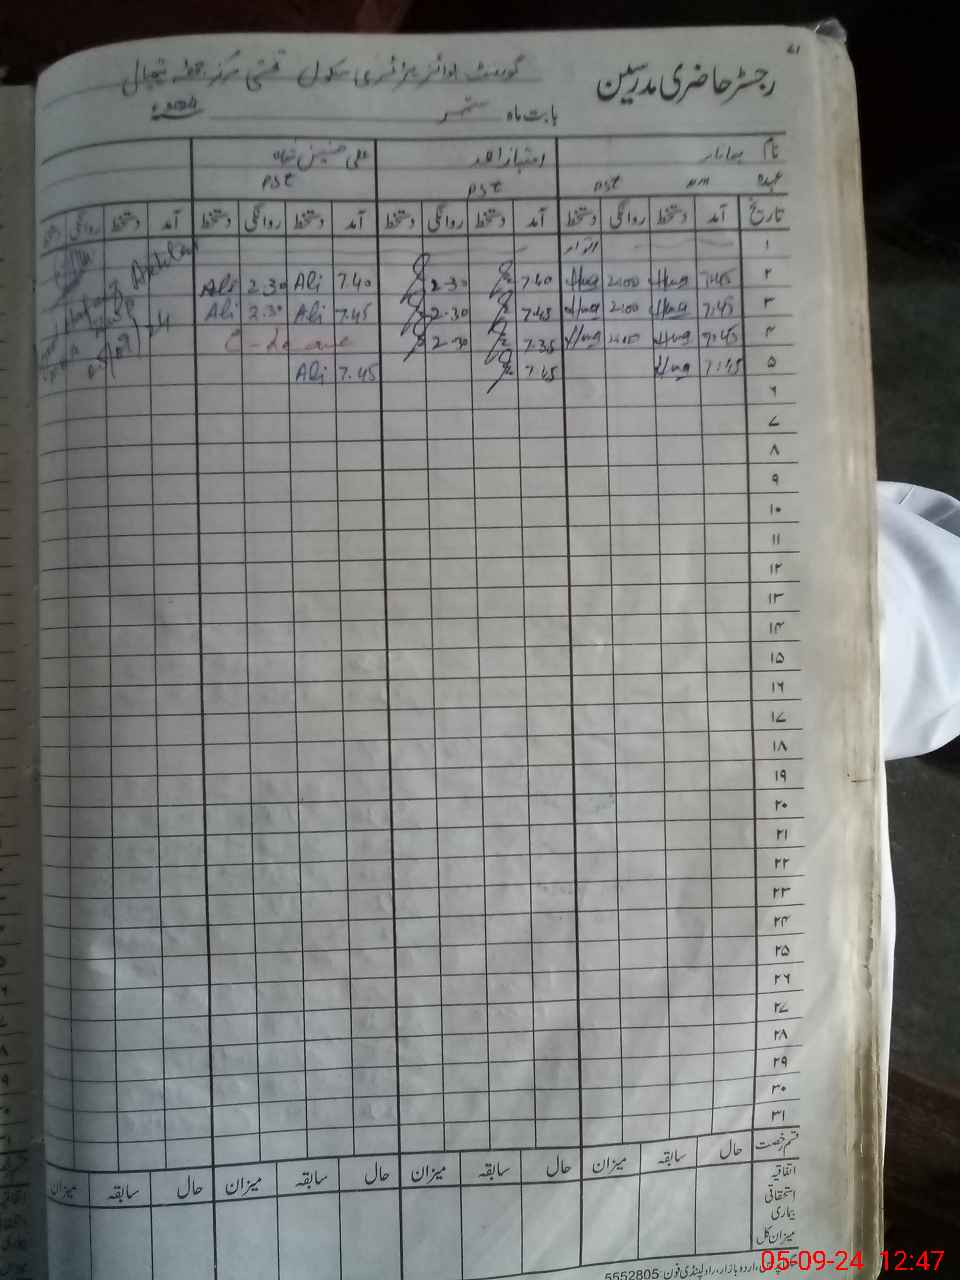 ۷۱
رجسٹر حاضری مدرسین گورنمنٹ بوائز پرائمری سکول
بابت ماہ ستمبر
نام امتیاز احمد علی حسنین
عہدہ PST PST PST
تاریخ آمد دستخط روانگی دستخط آمد دستخط روانگی دستخط آمد دستخط روانگی دستخط آمد دستخط روانگی دستخط
۱ اتوار
۲ 7.45 Huq 2:00 Huq 7.40 2-30 7.40 Ali 2.30 Ali
۳ 7.45 Huq 2:00 Huq 7.45 2-30 7.45 Ali 2.30 Ali
۴ 7.45 Huq Huq 7.35 2-30 C-Leave
۵ 7.45 Huq 7.45 7.45 Ali
۶
۷
۸
۹
۱۰
۱۱
۱۲
۱۳
۱۴
۱۵
۱۶
۱۷
۱۸
۱۹
۲۰
۲۱
۲۲
۲۳
۲۴
۲۵
۲۶
۲۷
۲۸
۲۹
۳۰
۳۱
قسم رخصت حال سابقہ میزان حال سابقہ میزان حال سابقہ میزان حال سابقہ میزان
اتفاقیہ
استحقاقی
بیماری
میزان کل
اردو بازار، راولپنڈی فون: 5552805
05-09-24 12:47